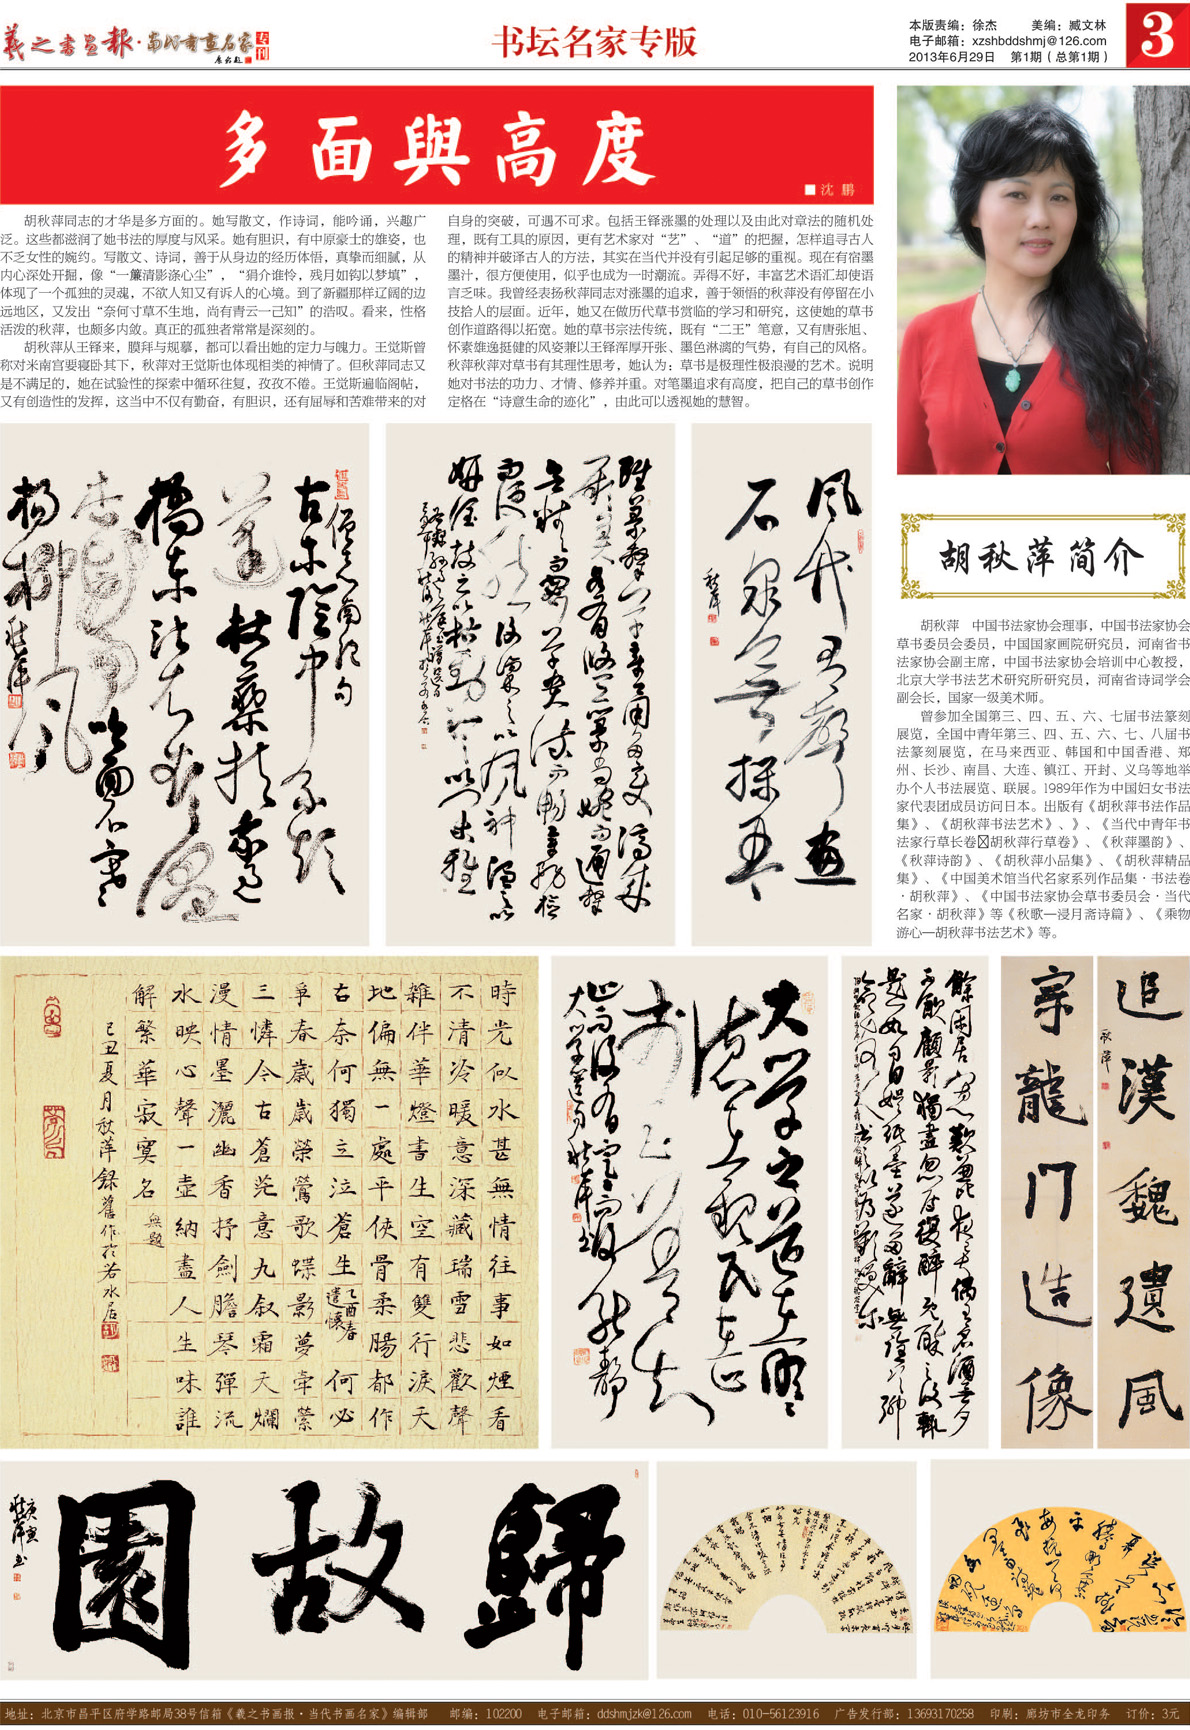 羲之书画报·当代书画名家
专刊
书坛名家专版
本版责编：徐杰 美编：臧文林
电子邮箱：xzshbddshmj@126.com
2013年6月29日 第1期（总第1期）
3
多面與高度
■沈 鹏
胡秋萍同志的才华是多方面的。她写散文，作诗词，能吟诵，兴趣广
泛。这些都滋润了她书法的厚度与风采。她有胆识，有中原豪士的雄姿，也
不乏女性的婉约。写散文、诗词，善于从身边的经历体悟，真挚而细腻，从
内心深处开掘，像“一簾清影涤心尘”，“狷介谁怜，残月如钩以梦填”，
体现了一个孤独的灵魂，不欲人知又有诉人的心境。到了新疆那样辽阔的边
远地区，又发出“奈何寸草不生地，尚有青云一己知”的浩叹。看来，性格
活泼的秋萍，也颇多内敛。真正的孤独者常常是深刻的。
胡秋萍从王铎来，膜拜与规摹，都可以看出她的定力与魄力。王觉斯曾
称对米南宫要寝卧其下，秋萍对王觉斯也体现相类的神情了。但秋萍同志又
是不满足的，她在试验性的探索中循环往复，孜孜不倦。王觉斯遍临阁帖，
又有创造性的发挥，这当中不仅有勤奋，有胆识，还有屈辱和苦难带来的对
自身的突破，可遇不可求。包括王铎涨墨的处理以及由此对章法的随机处
理，既有工具的原因，更有艺术家对“艺”、“道”的把握，怎样追寻古人
的精神并破译古人的方法，其实在当代并没有引起足够的重视。现在有宿墨
墨汁，很方便使用，似乎也成为一时潮流。弄得不好，丰富艺术语汇却使语
言乏味。我曾经表扬秋萍同志对涨墨的追求，善于领悟的秋萍没有停留在小
技拾人的层面。近年，她又在做历代草书赏临的学习和研究，这使她的草书
创作道路得以拓宽。她的草书宗法传统，既有“二王”笔意，又有唐张旭、
怀素雄逸挺健的风姿兼以王铎浑厚开张、墨色淋漓的气势，有自己的风格。
秋萍秋萍对草书有其理性思考，她认为：草书是极理性极浪漫的艺术。说明
她对书法的功力、才情、修养并重。对笔墨追求有高度，把自己的草书创作
定格在“诗意生命的迹化”，由此可以透视她的慧智。
胡秋萍简介
胡秋萍 中国书法家协会理事，中国书法家协会
草书委员会委员，中国国家画院研究员，河南省书
法家协会副主席，中国书法家协会培训中心教授，
北京大学书法艺术研究所研究员，河南省诗词学会
副会长，国家一级美术师。
曾参加全国第三、四、五、六、七届书法篆刻
展览，全国中青年第三、四、五、六、七、八届书
法篆刻展览，在马来西亚、韩国和中国香港、郑
州、长沙、南昌、大连、镇江、开封、义乌等地举
办个人书法展览、联展。1989年作为中国妇女书法
家代表团成员访问日本。出版有《胡秋萍书法作品
集》、《胡秋萍书法艺术》、》、《当代中青年书
法家行草长卷胡秋萍行草卷》、《秋萍墨韵》、
《秋萍诗韵》、《胡秋萍小品集》、《胡秋萍精品
集》、《中国美术馆当代名家系列作品集·书法卷
·胡秋萍》、《中国书法家协会草书委员会·当代
名家·胡秋萍》等《秋歌—浸月斋诗篇》、《乘物
游心—胡秋萍书法艺术》等。
古木陰中系短
篷杖藜扶我過
橋東沾衣欲濕
杏花雨吹面不寒
楊柳風
僧志南絕句
秋萍
風代有聲畫
石泉無操琴
秋萍
時光似水甚無情往事如煙看
不清冷暖意深藏瑞雪悲歡聲
雜伴華燈書生空有雙行淚天
地偏無一處平俠骨柔腸都作
古奈何獨立泣蒼生乙酉春遣懷何必
爭春歲歲榮鶯歌蝶影夢牽縈
三憐今古蒼茫意九叙霜天爛
漫情墨灑幽香抒劍膽琴彈流
水映心聲一壺納盡人生味誰
解繁華寂寞名 無題
己丑夏月秋萍錄舊作於若水居
大學之道在明明
德在親民在止
於至善知
止而後有定定而後能靜
大學道句秋萍書
餘閑居寡歡兼比夜已長偶有名酒無夕
不飲顧影獨盡忽焉復醉既醉之後輒
題數句自娛紙墨遂多辭無詮次聊
追漢魏遺風
宗龍門造像
秋萍
歸故園
庚寅
秋萍书
地址：北京市昌平区府学路邮局38号信箱《羲之书画报·当代书画名家》编辑部 邮编：102200 电子邮箱：ddshmjzk@126.com 电话：010-56123916 广告发行部：13693170258 印刷：廊坊市金龙印务 订价：3元